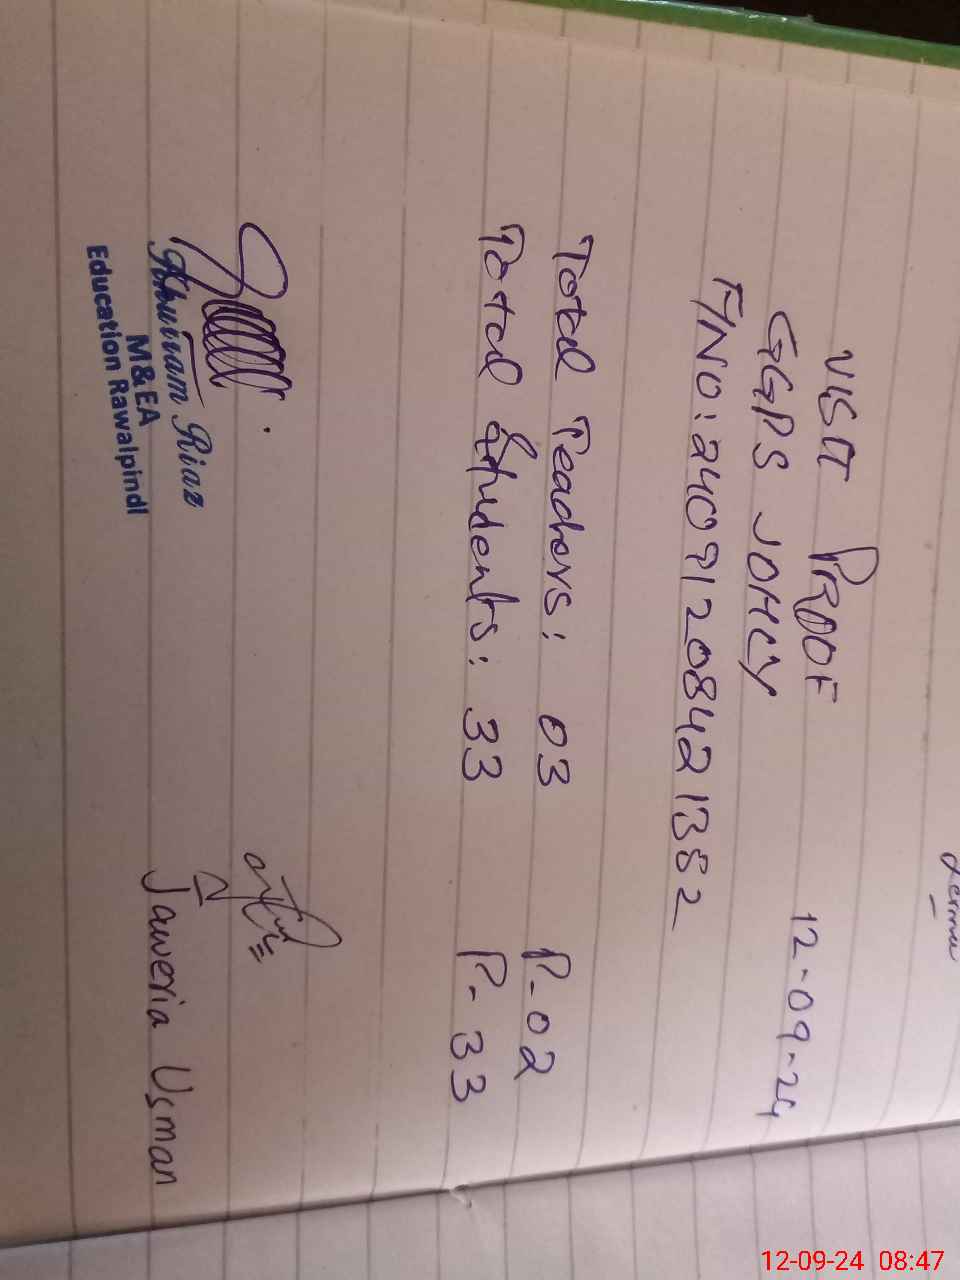 VISIT PROOF
12-09-24
GGPS JOHCY
F/NO: 2409120842 1382
Total Teachers: 03 P-02
Total Students: 33 P-33
Khurram Riaz
M&EA
Education Rawalpindi
Jaweria Usman
12-09-24 08:47